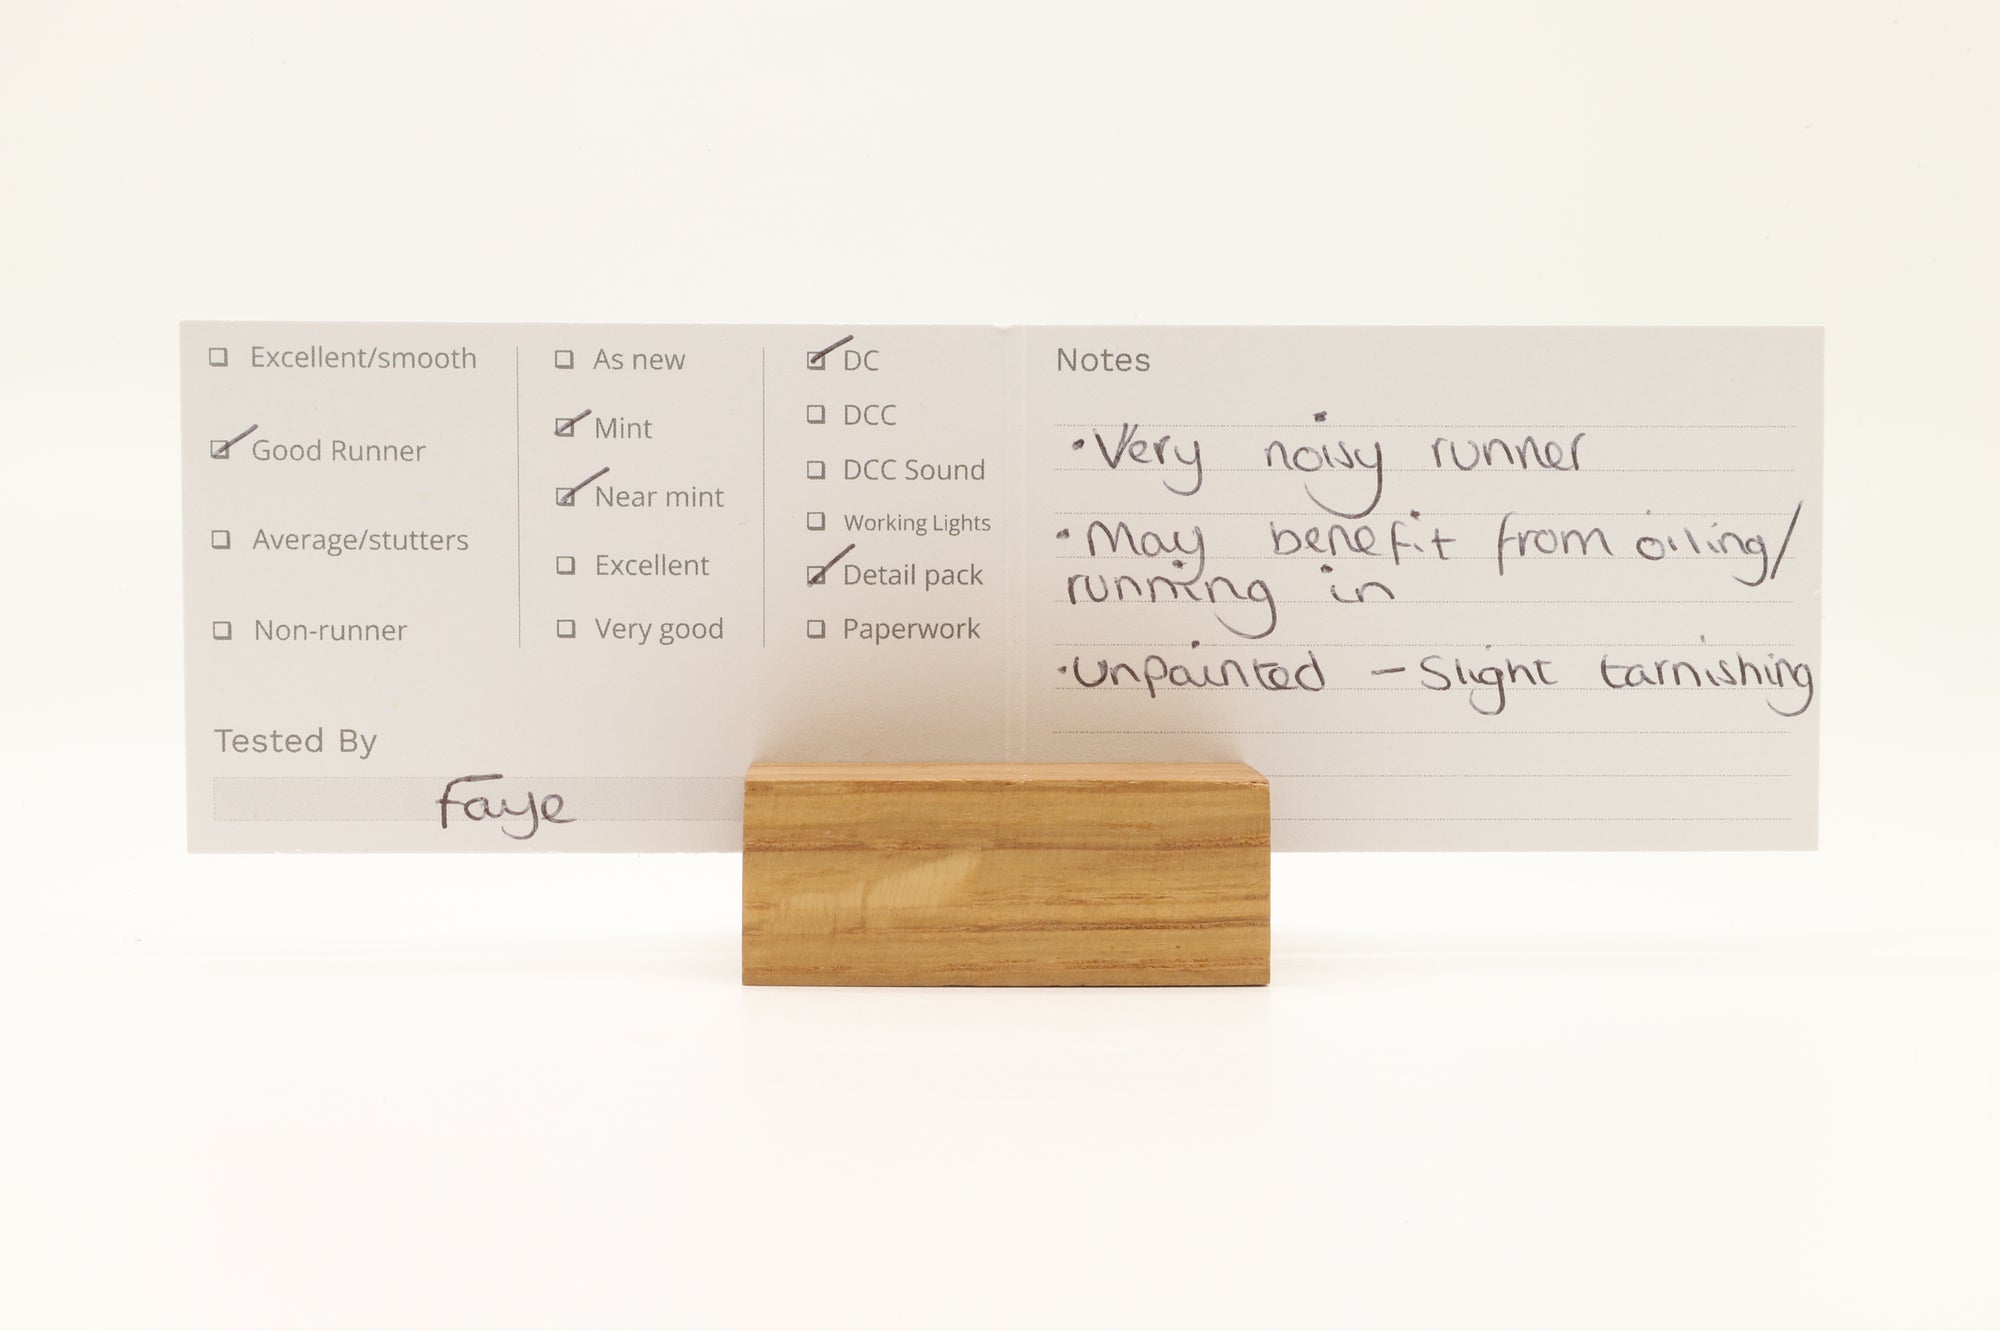 ☐ Excellent/smooth
☑ Good Runner
☐ Average/stutters
☐ Non-runner
☐ As new
☑ Mint
☑ Near mint
☐ Excellent
☐ Very good
☑ DC
☐ DCC
☐ DCC Sound
☐ Working Lights
☑ Detail pack
☐ Paperwork
Tested By
Faye
Notes
• Very noisy runner
• May benefit from oiling/
running in
• Unpainted – Slight tarnishing